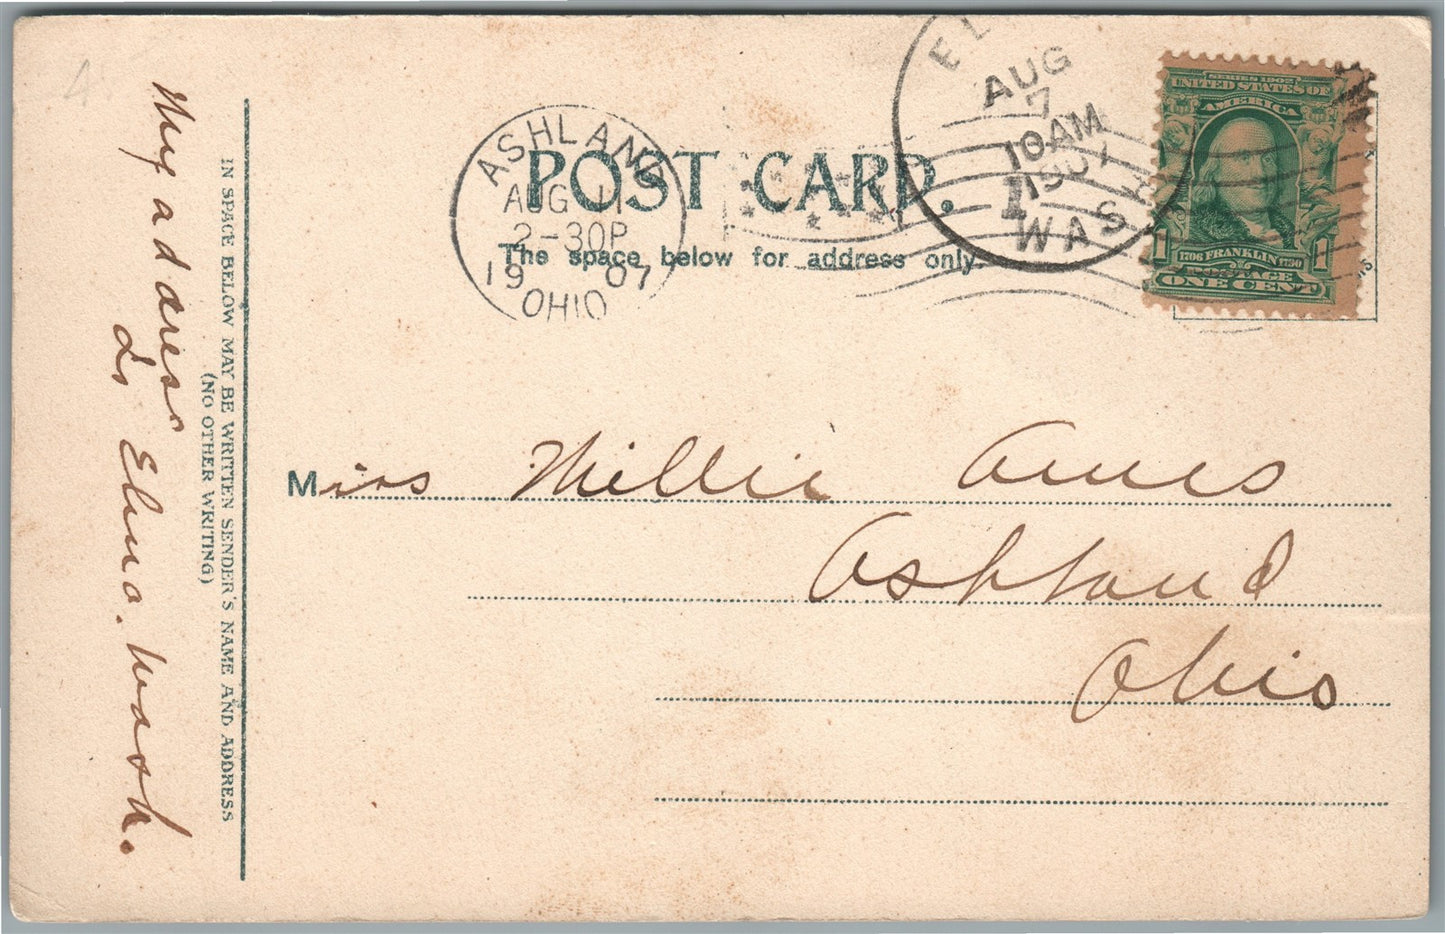 My adress
Is Elma. Wash.
IN SPACE BELOW MAY BE WRITTEN SENDER'S NAME AND ADDRESS
(NO OTHER WRITING)
POST CARD.
The space below for address only.
ASHLAND
AUG 11
2-30P
19 07
OHIO
AUG
7
10AM
1907
WASH
SERIES 1902
UNITED STATES OF
AMERICA
1706 FRANKLIN 1790
POSTAGE
1 1
ONE CENT
Miss Millie Ames
Ashland
Ohio